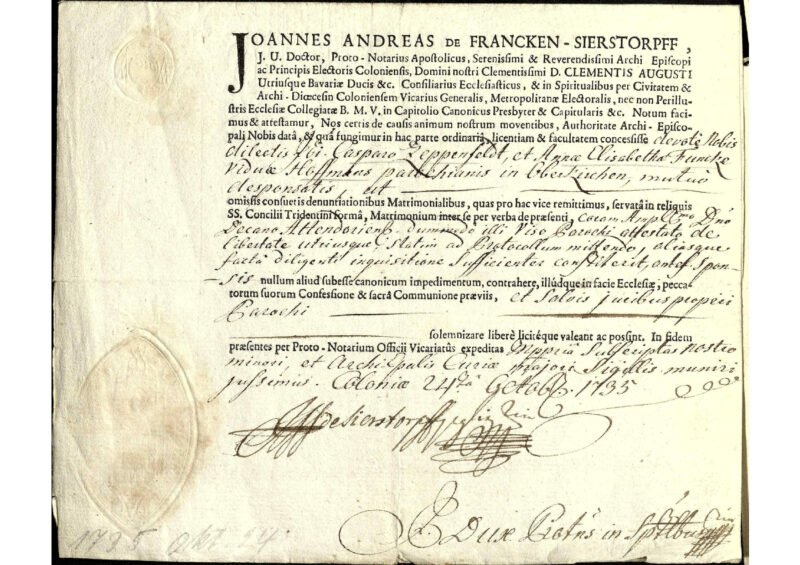 JOANNES ANDREAS DE FRANCKEN-SIERSTORPFF,
J. U. Doctor, Proto-Notarius Apostolicus, Serenissimi & Reverendissimi Archi Episcopi
ac Principis Electoris Coloniensis, Domini nostri Clementissimi D. CLEMENTIS AUGUSTI
Utriusque Bavariæ Ducis &c. Consiliarius Ecclesiasticus, & in Spiritualibus per Civitatem &
Archi-Diœcesin Coloniensem Vicarius Generalis, Metropolitanæ Electoralis, nec non Perillu-
stris Ecclesiæ Collegiatæ B. M. V. in Capitolio Canonicus Presbyter & Capitularis &c. Notum faci-
mus & attestamur, Nos certis de causis animum nostrum moventibus, Authoritate Archi-Episco-
pali Nobis datâ, & quâ fungimur in hac parte ordinariâ, licentiam & facultatem concessisse devotè Nobis
dilectis Casparo Zeppenfeldt, et Annæ Elisabethæ Funcke
viduæ Hoffmans parochianis in Oberkirchen, mutuò
desponsatis, ut
omissis consuetis denuntiationibus Matrimonialibus, quas pro hac vice remittimus, servatâ in reliquis
SS. Concilii Tridentini formâ, Matrimonium inter se per verba de præsenti, coram Ampl.mo Dno
Decano Attendoriensi dummodo illi viso Parochi attestato de
libertate utriusque statûs ad Protocollum mittendo, aliasque
factâ diligenti inquisitione sufficienter constiterit, inter spon-
sis nullum aliud subesse canonicum impedimentum, contrahere, illúdque in facie Ecclesiæ, pecca-
torum suorum Confessione & sacrâ Communione præviis, et salvis juribus proprii
Parochi
solemnizare liberè licitéque valeant ac possint. In fidem
præsentes per Proto-Notarium Officii Vicariatûs expeditas subscriptas nostro
minori, et Archi Curiæ majori Sigillis muniri
jussimus. Coloniæ 24ta Octobr. 1735
de Sierstorpff
Dux in
1735 Okt. 24.